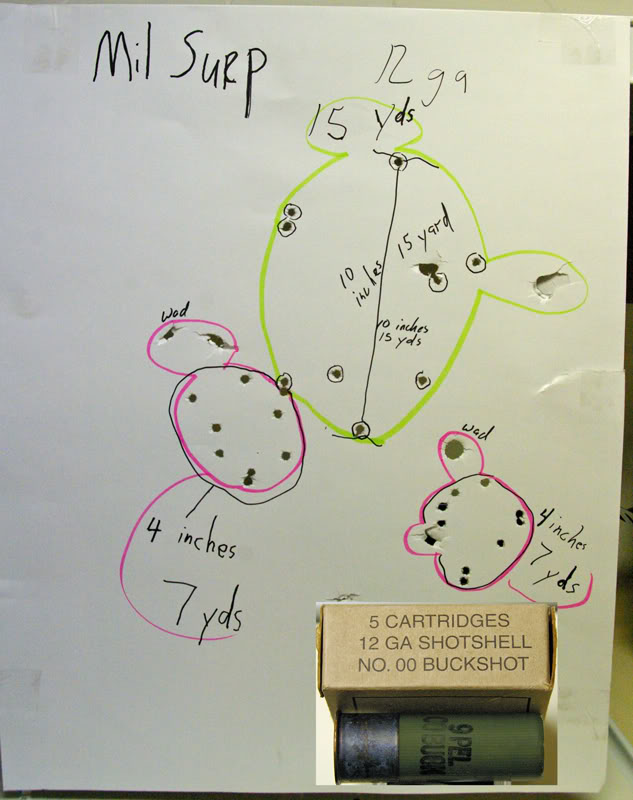 Mil Surp
12 ga
15 yds
15 yard
10 inches
10 inches
15 yds
wad
wad
4 inches
7 yds
4 inches
7 yds
5 CARTRIDGES
12 GA SHOTSHELL
NO. 00 BUCKSHOT
9 PEL
00 BUCK